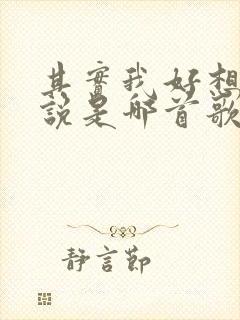 其實我好想
說是那首歌
靜言節